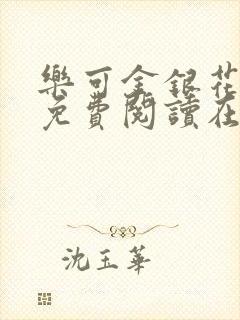 樂可金銀花
免費閱讀在
沈玉華